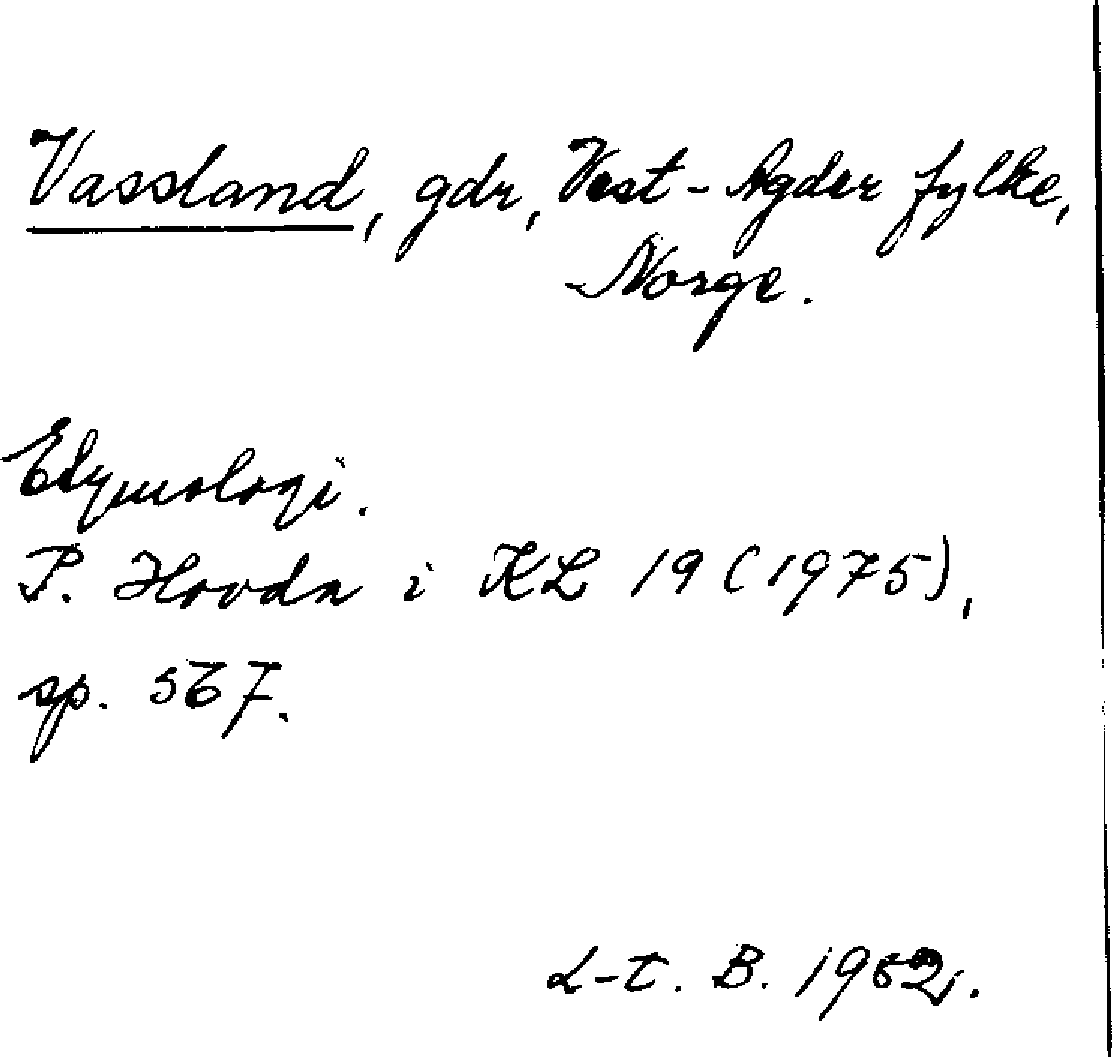 Vassland, gdr, Vest-Agder fylke,
Norge.
Etymologi.
P. Hovda i KL 19 (1975),
sp. 567.
L-t. B. 1982.